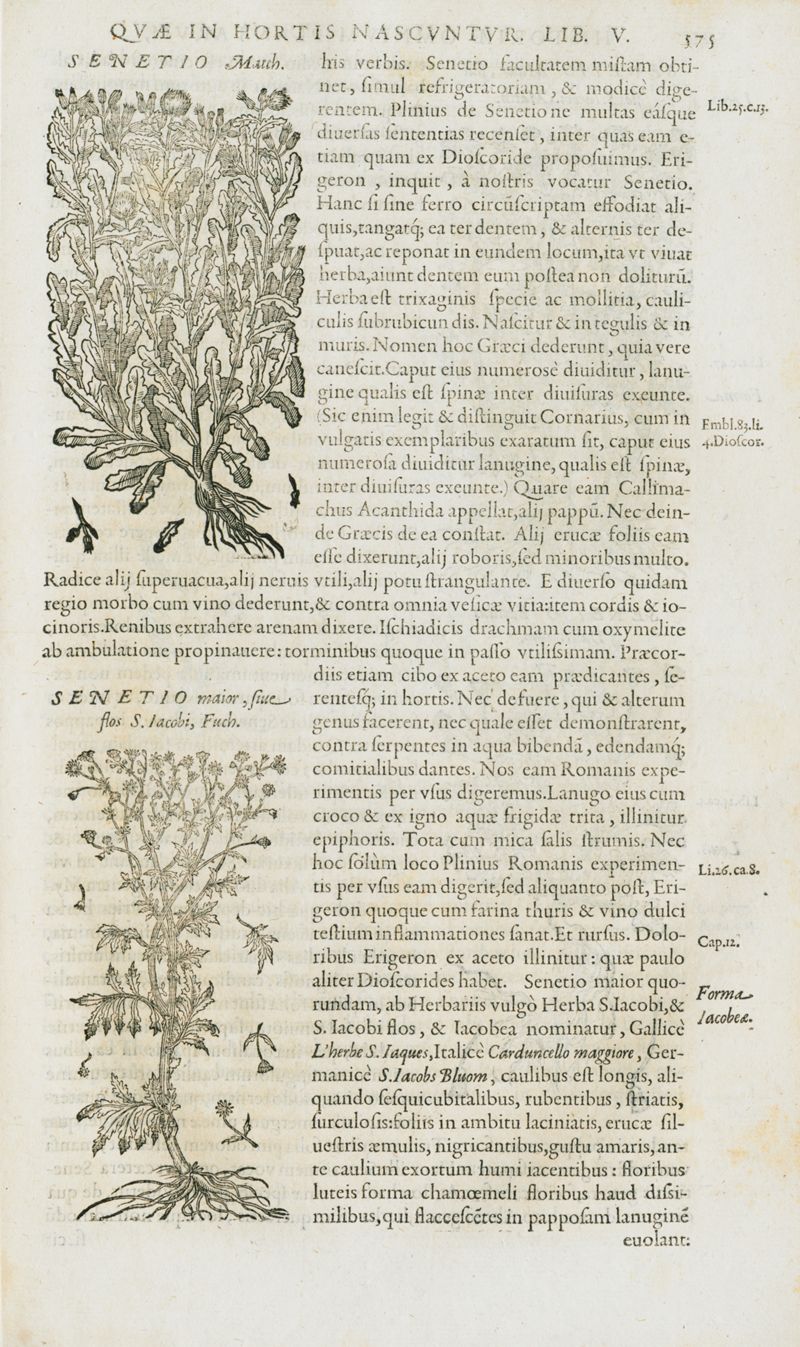 QVÆ IN HORTIS NASCVNTVR. LIB. V. 575
SENETIO Matth.
his verbis. Senetio facultatem miſtam obti-
net, ſimul refrigeratoriam, & modicè dige-
rentem. Plinius de Senetione multas eáſque
Lib.25.c.13.
diuerſas ſententias recenſet, inter quas eam e-
tiam quam ex Dioſcoride propoſuimus. Eri-
geron, inquit, à noſtris vocatur Senetio.
Hanc ſi ſine ferro circūſcriptam effodiat ali-
quis, tangatq́; ea ter dentem, & alternis ter de-
ſpuat, ac reponat in eundem locum, ita vt viuat
herba, aiunt dentem eum poſtea non doliturū.
Herba eſt trixaginis ſpecie ac mollitia, cauli-
culis ſubrubicundis. Naſcitur & in tegulis & in
muris. Nomen hoc Græci dederunt, quia vere
caneſcit. Caput eius numerosè diuiditur, lanu-
gine qualis eſt ſpinæ inter diuiſuras exeunte.
(Sic enim legit & diſtinguit Cornarius, cum in
Embl.83.li.
vulgatis exemplaribus exaratum ſit, caput eius
4.Dioſcor.
numeroſa diuiditur lanugine, qualis eſt ſpinæ,
inter diuiſuras exeunte.) Quare eam Callima-
chus Acanthida appellat, alij pappū. Nec dein-
de Græcis de ea conſtat. Alij erucæ foliis eam
eſſe dixerunt, alij roboris, ſed minoribus multo.
Radice alij ſuperuacua, alij neruis vtili, alij potu ſtrangulante. E diuerſo quidam
regio morbo cum vino dederunt, & contra omnia veſicæ vitia: item cordis & io-
cinoris. Renibus extrahere arenam dixere. Iſchiadicis drachmam cum oxymelite
ab ambulatione propinauere: torminibus quoque in paſſo vtiliſsimam. Præcor-
diis etiam cibo ex aceto eam prædicantes, ſe-
SENETIO maior, ſiue
flos S. Iacobi, Fuch.
renteſq́; in hortis. Nec defuere, qui & alterum
genus facerent, nec quale eſſet demonſtrarent,
contra ſerpentes in aqua bibendā, edendamq́;
comitialibus dantes. Nos eam Romanis expe-
rimentis per vſus digeremus. Lanugo eius cum
croco & exiguo aquæ frigidæ trita, illinitur
epiphoris. Tota cum mica ſalis ſtrumis. Nec
hoc ſolùm loco Plinius Romanis experimen-
Li.26.ca.8.
tis per vſus eam digerit, ſed aliquanto poſt, Eri-
geron quoque cum farina thuris & vino dulci
teſtium inflammationes ſanat. Et rurſus. Dolo-
Cap.12.
ribus Erigeron ex aceto illinitur: quæ paulo
aliter Dioſcorides habet. Senetio maior quo-
Forma
rundam, ab Herbariis vulgò Herba S. Iacobi, &
Iacobeæ.
S. Iacobi flos, & Iacobea nominatur, Gallicè
L'herbe S. Iaques, Italicè Carduncello maggiore, Ger-
manicè S. Iacobs Bluom, caulibus eſt longis, ali-
quando ſeſquicubitalibus, rubentibus, ſtriatis,
ſurculoſis: foliis in ambitu laciniatis, erucæ ſil-
ueſtris æmulis, nigricantibus, guſtu amaris, an-
te caulium exortum humi iacentibus: floribus
luteis forma chamœmeli floribus haud diſsi-
milibus, qui flacceſcētes in pappoſam lanuginē
euolant: